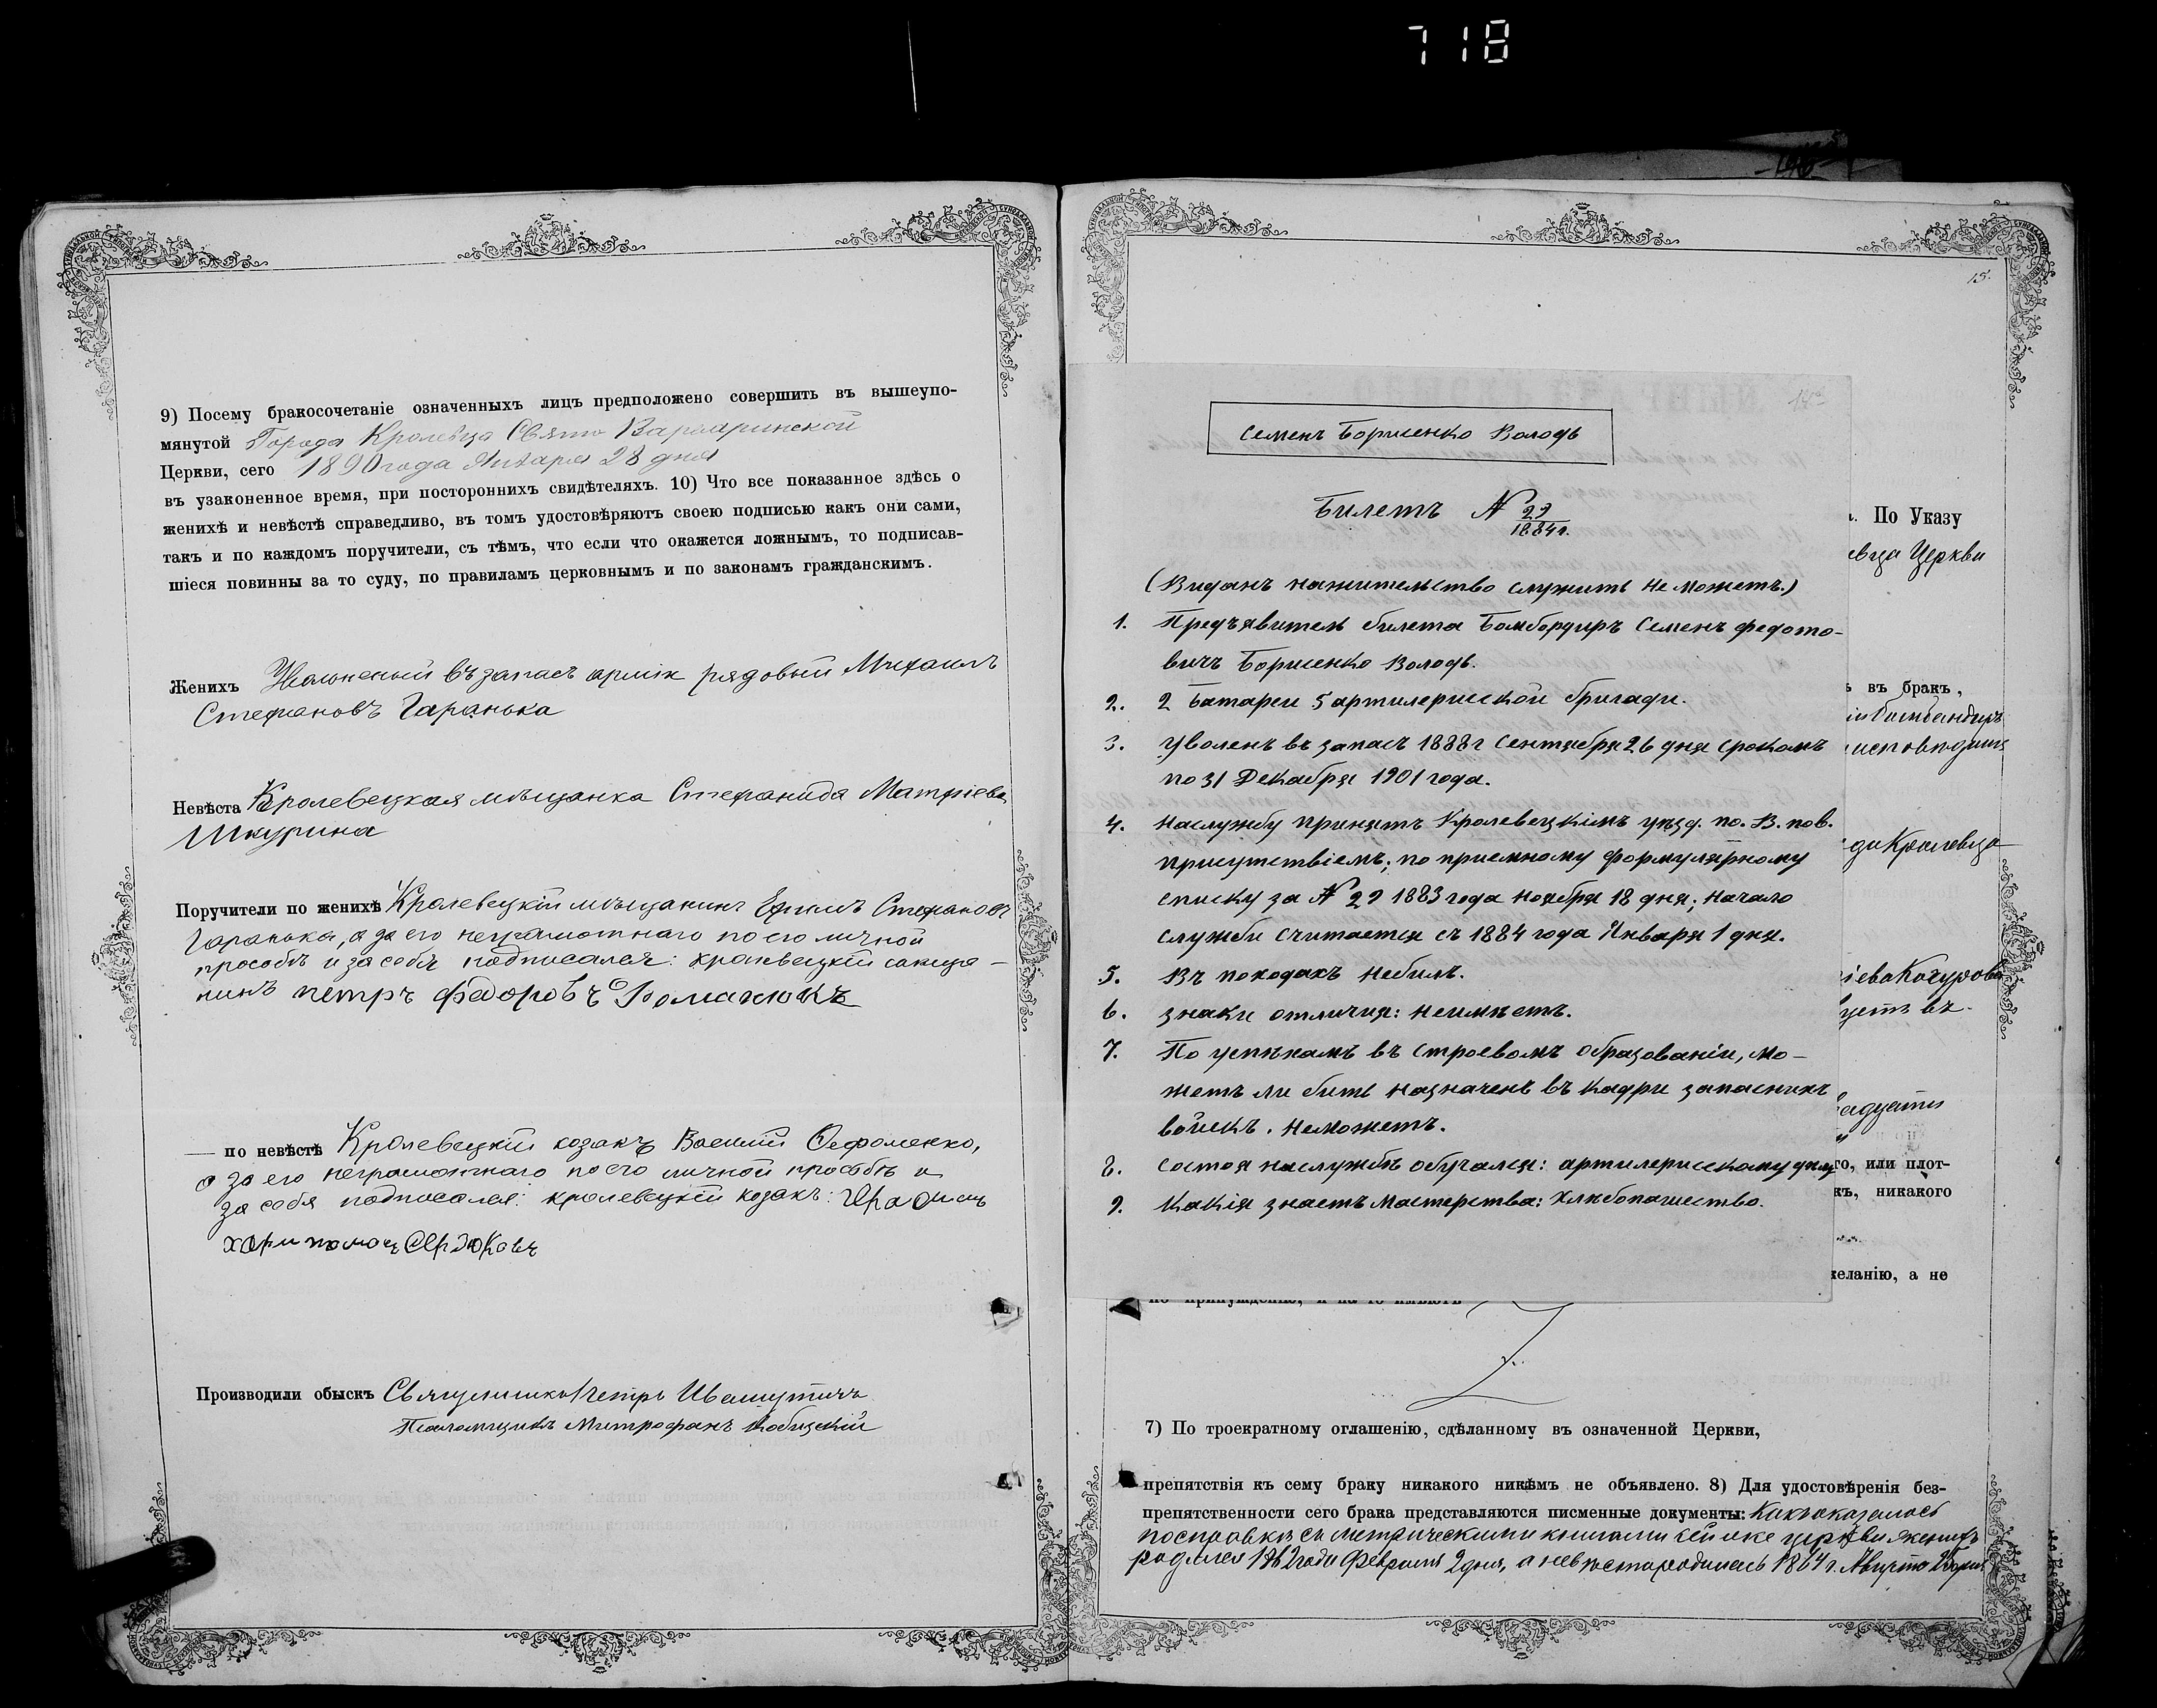 718
9) Посему бракосочетаніе означенныхъ лицъ предположено совершить въ вышеупо-
мянутой Города Кролевца Свято Варваринской
Церкви, сего 1890 года Января 28 дня
въ узаконенное время, при постороннихъ свидѣтеляхъ. 10) Что все показанное здѣсь о
женихѣ и невѣстѣ справедливо, въ томъ удостовѣряютъ своею подписью какъ они сами,
такъ и по каждомъ поручители, съ тѣмъ, что если что окажется ложнымъ, то подписав-
шіеся повинны за то суду, по правиламъ церковнымъ и по законамъ гражданскимъ.
Женихъ Уволненый въ запасъ арміи рядовый Михаилъ
Стефановъ Гаранька
Невѣста Кролевецкая мѣщанка Стефанида Матфіева
Шкурина
Поручители по женихѣ Кролевецкій мѣщанинъ Ефимъ Стефановъ
Гаранька, а за его неграмотнаго по его личной
прозбѣ и за себя подписался: кролевецкій
петръ Федоровъ Романюкъ
— по невѣстѣ Кролевецкій козакъ Василій
а за его неграмотнаго по его личной прозбѣ и
за себя подписался: кролевецкій козакъ:
Производили обыскъ Священникъ Петръ
Псаломщикъ Митрофанъ
15.
Семенъ Борисенко Володь
Билетъ N 29
1884 г.
(Виданъ нажительство служить не можетъ.)
1. Предъявитель билета Бомбордиръ Семенъ федото-
вичъ Борисенко Володь.
2. 2 Батареи 5 артилерииской бригади.
3. Уволенъ въ запасъ 1888 г Сентября 26 дня срокомъ
по 31 Декабря 1901 года.
4. Наслужбу принятъ Кролевецкімъ уѣзд. по. В. пов.
присутствіемъ; по приемному формулярному
списку за N 29 1883 года ноября 18 дня; начало
служби считается съ 1884 года Января 1 дня.
5. Въ походахъ небилъ.
6. знаки отличия: неимѣетъ.
7. По успѣхамъ въ строевомъ образованіи, мо-
жетъ ли бить назначенъ въ кадри запаснихъ
войскъ. неможетъ.
8. состоя наслужбѣ обучался: артилерисскому дѣлу
9. Какія знаетъ мастерства: хлѣбопашество.
По Указу
Церкви
въ бракъ,
Кролевца
Кочурова
го, или плот-
никакого
желанію, а не
7) По троекратному оглашенію, сдѣланному въ означенной Церкви,
препятствія къ сему браку никакого никѣмъ не объявлено. 8) Для удостовѣренія без-
препятственности сего брака представляются писменные документы: Какъ оказалось
посправкѣ съ метрическими книгами церкви женихъ
родился 1862 года Февраля 2 дня, а невѣста родилась 1864 г. Августа